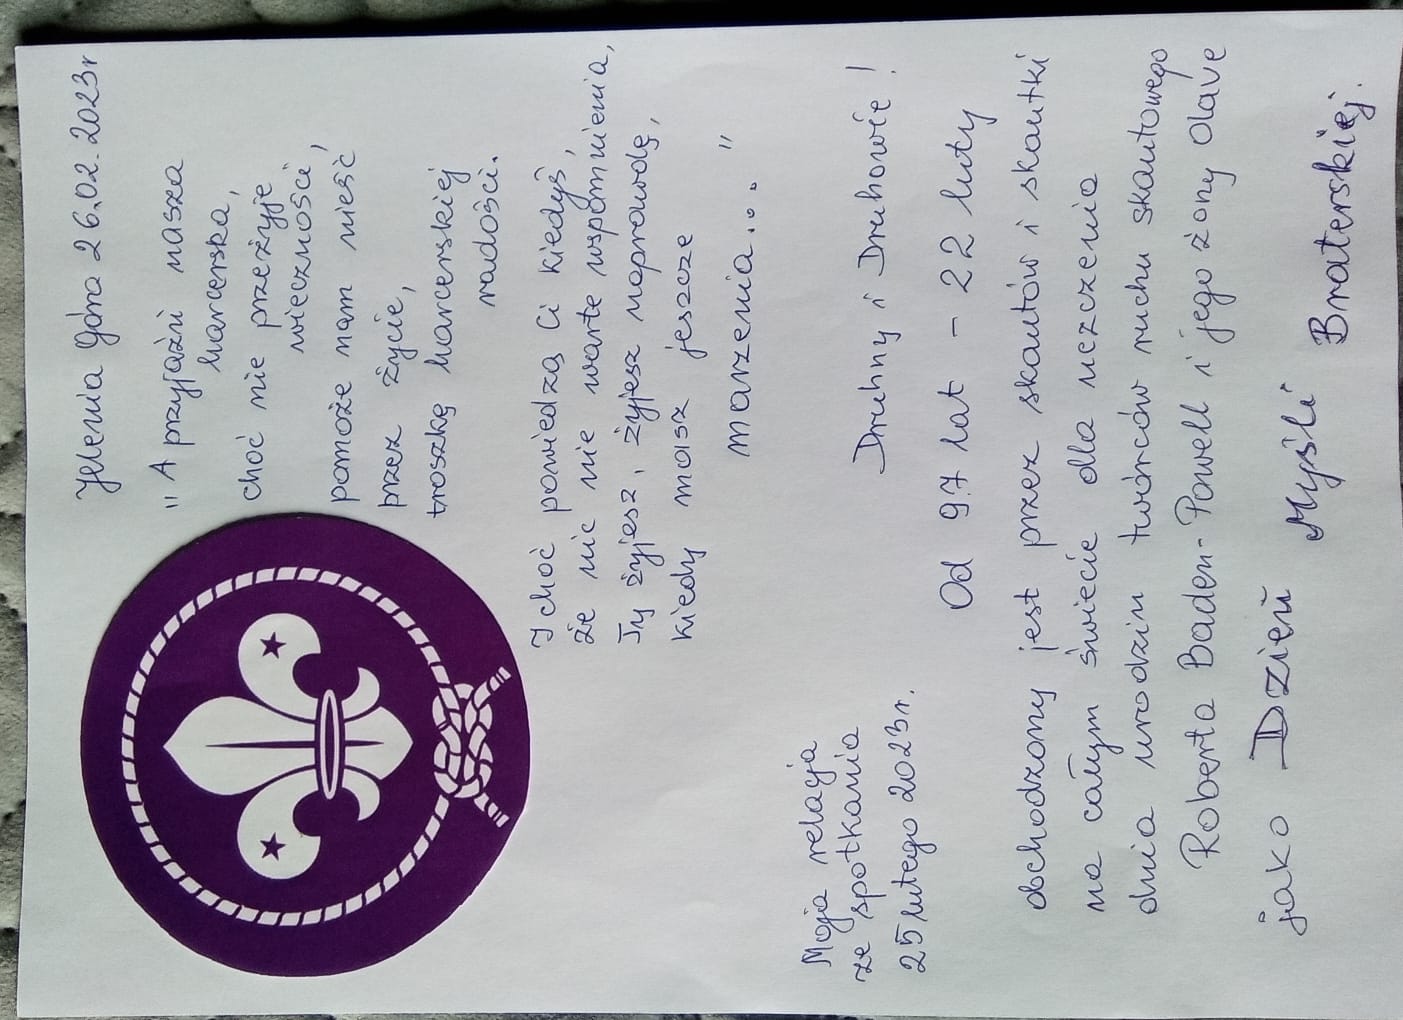 Jelenia Góra 26.02.2023r
„ A przyjaźń nasza
harcerska,
choć nie przeżyje
wieczności,
pomoże nam nieść
przez życie,
troszkę harcerskiej
radości.
I choć powiedzą Ci kiedyś,
że nic nie warte wspomnienia,
Ty żyjesz, żyjesz naprawdę,
kiedy masz jeszcze
marzenia... "
Moja relacja
ze spotkania
25 lutego 2023r.
Druhny i Druhowie!
Od 97 lat - 22 luty
obchodzony jest przez skautów i skautki
na całym świecie dla uczczenia
dnia urodzin twórców ruchu skautowego
Roberta Baden-Powell i jego żony Olave
jako Dzień Myśli Braterskiej.